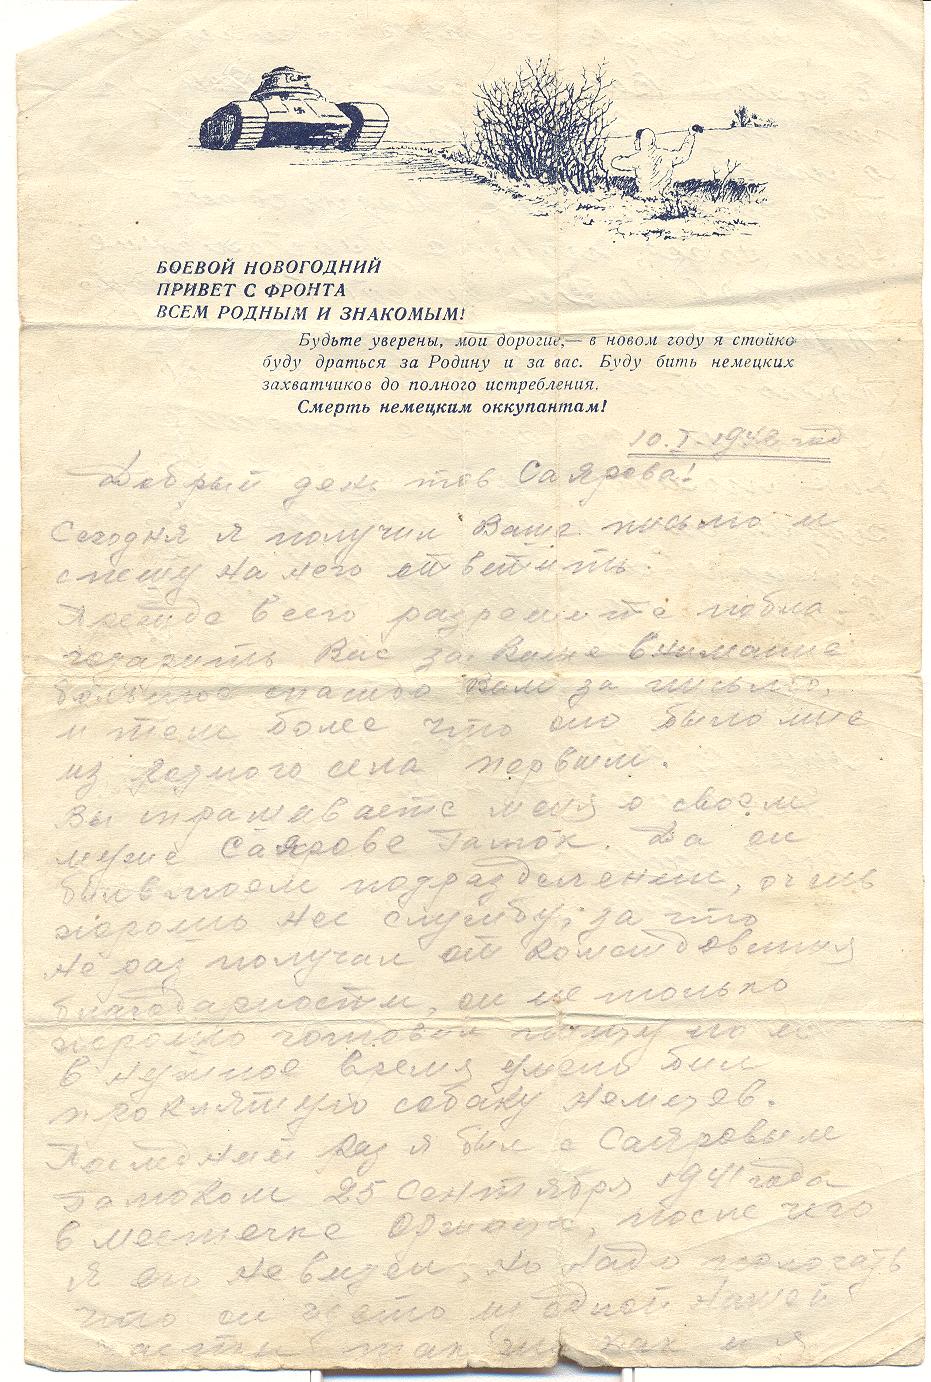 БОЕВОЙ НОВОГОДНИЙ
ПРИВЕТ С ФРОНТА
ВСЕМ РОДНЫМ И ЗНАКОМЫМ!
Будьте уверены, мои дорогие,— в новом году я стойко
буду драться за Родину и за вас. Буду бить немецких
захватчиков до полного истребления.
Смерть немецким оккупантам!
10.I.1942 год
Добрый день тов Саярова!
Сегодня я получил Ваше письмо и
спешу на него ответить.
Прежде всего разрешите побла-
годарить Вас за Ваше внимание
большое спасибо Вам за письмо,
и тем более что оно было мне
из родного села первым.
Вы спрашиваете меня о своем
муже Саярове. Да он
был в моем подразделении, очень
хорошо нес службу, за что
не раз получал от командования
благодарности, он не только
хорошо готовил пищу но и
в нужное время умело бил
проклятую собаку немцев.
Последний раз я был с Саяровым
25 сентября 1941 года
в местечке Оржица, после чего
я его не видел, но надо полагать
что он из одной нашей
части так же как и я